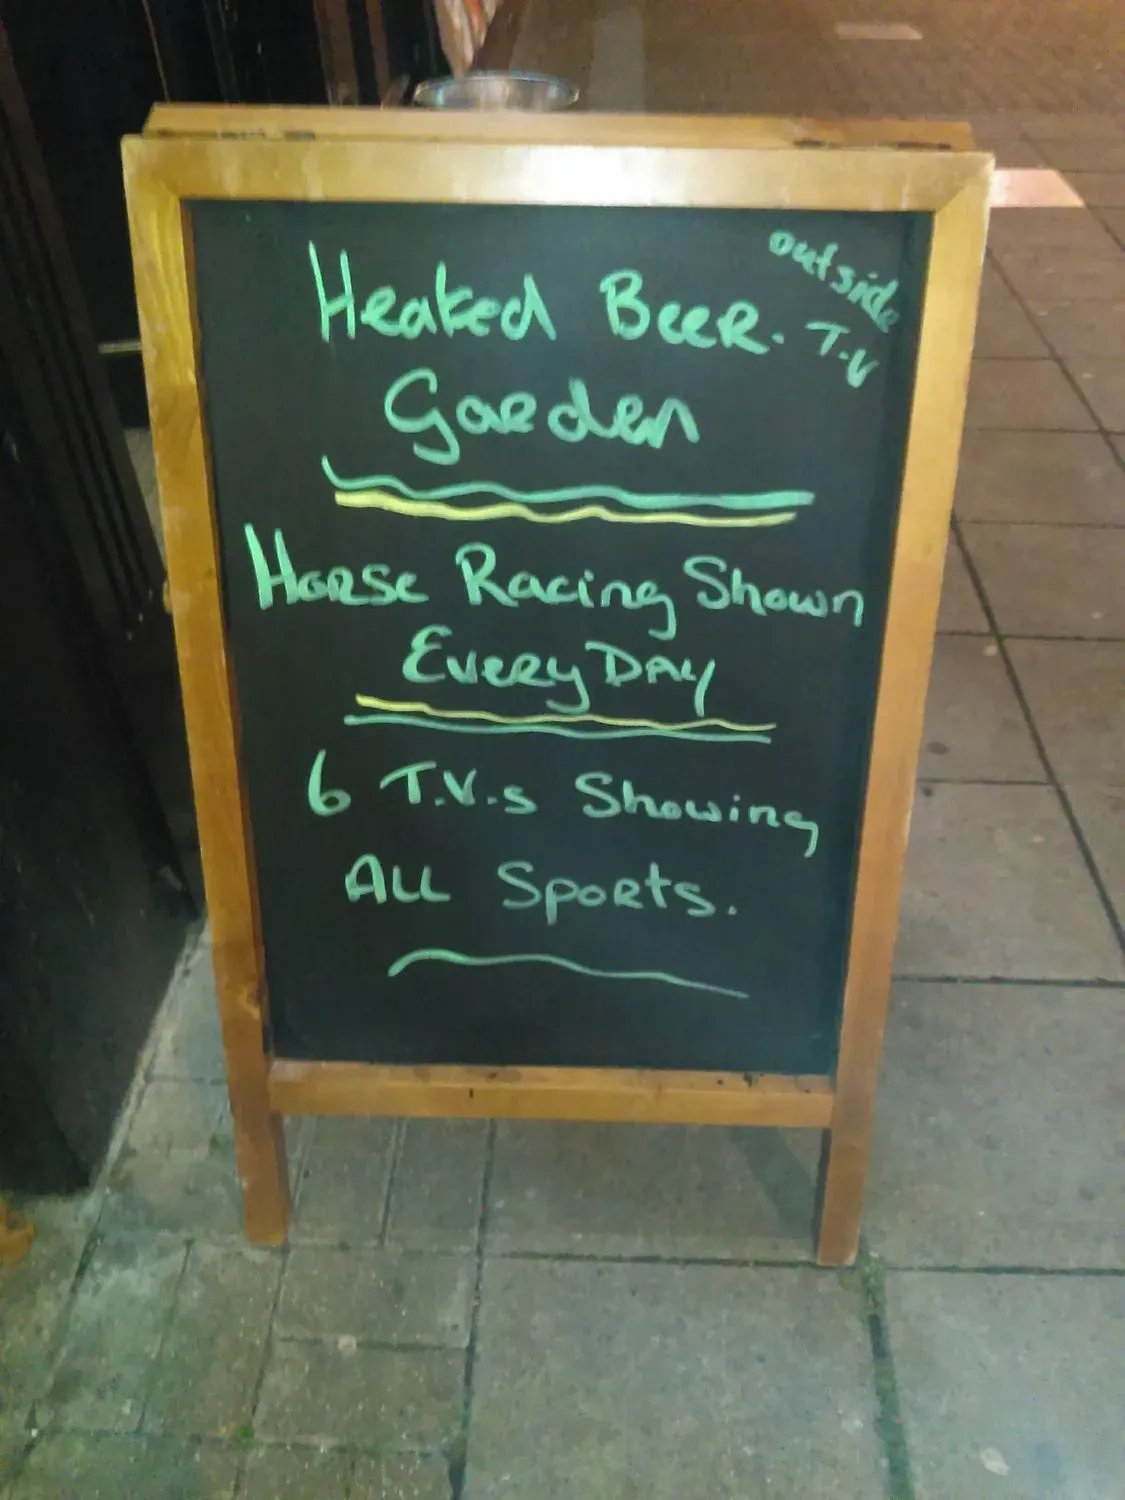 Heated Beer.
Garden
outside
T.V
Horse Racing Shown
Every Day
6 T.V.s Showing
All Sports.